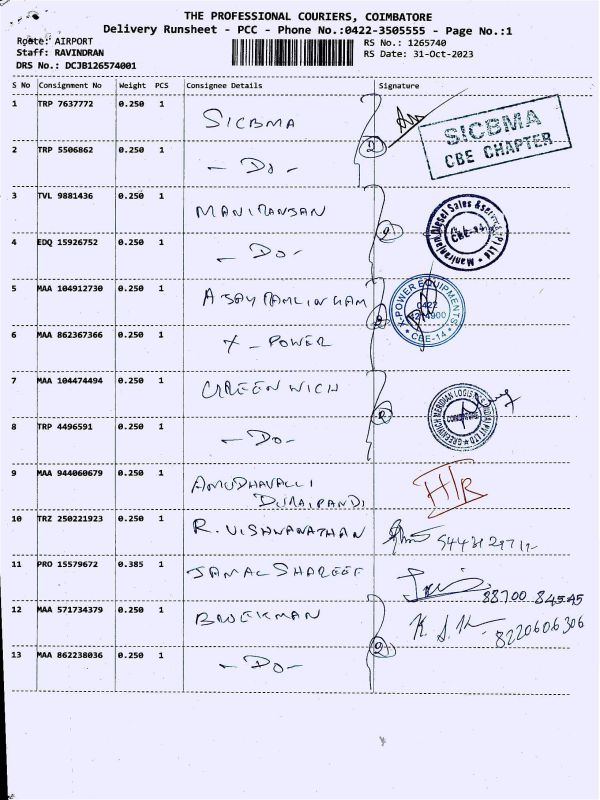 THE PROFESSIONAL COURIERS, COIMBATORE
Delivery Runsheet - PCC - Phone No.:0422-3505555 - Page No.:1
Route: AIRPORT
Staff: RAVINDRAN
DRS No.: DCJB126574001
RS No.: 1265740
RS Date: 31-Oct-2023
S No Consignment No Weight PCS Consignee Details Signature
1 TRP 7637772 0.250 1 SICBMA
SICBMA
CBE CHAPTER
2 TRP 5506862 0.250 1 - Do - 2
3 TVL 9881436 0.250 1 MANIRANJAN 2
Maniranjan Diesel Sales & Service (P) Ltd
4 EDQ 15926752 0.250 1 - Do -
5 MAA 104912730 0.250 1 AJAY RAMLINGHAM 2
X-POWER EQUIPMENTS
0422
CBE-14
6 MAA 862367366 0.250 1 X - POWER
7 MAA 104474494 0.250 1 GREENWICH 2
GREENWICH MERIDIAN LOGISTICS INDIA PVT LTD
COIMBATORE
8 TRP 4496591 0.250 1 - Do -
9 MAA 944060679 0.250 1 AMUDHAVALLI
DURAIPANDI
H/R
10 TRZ 250221923 0.250 1 R. VISHWANATHAN
11 PRO 15579672 0.385 1 JAMAL SHAREEF
88700 84545
12 MAA 571734379 0.250 1 BROEKMAN 2
8220606306
13 MAA 862238036 0.250 1 - Do -